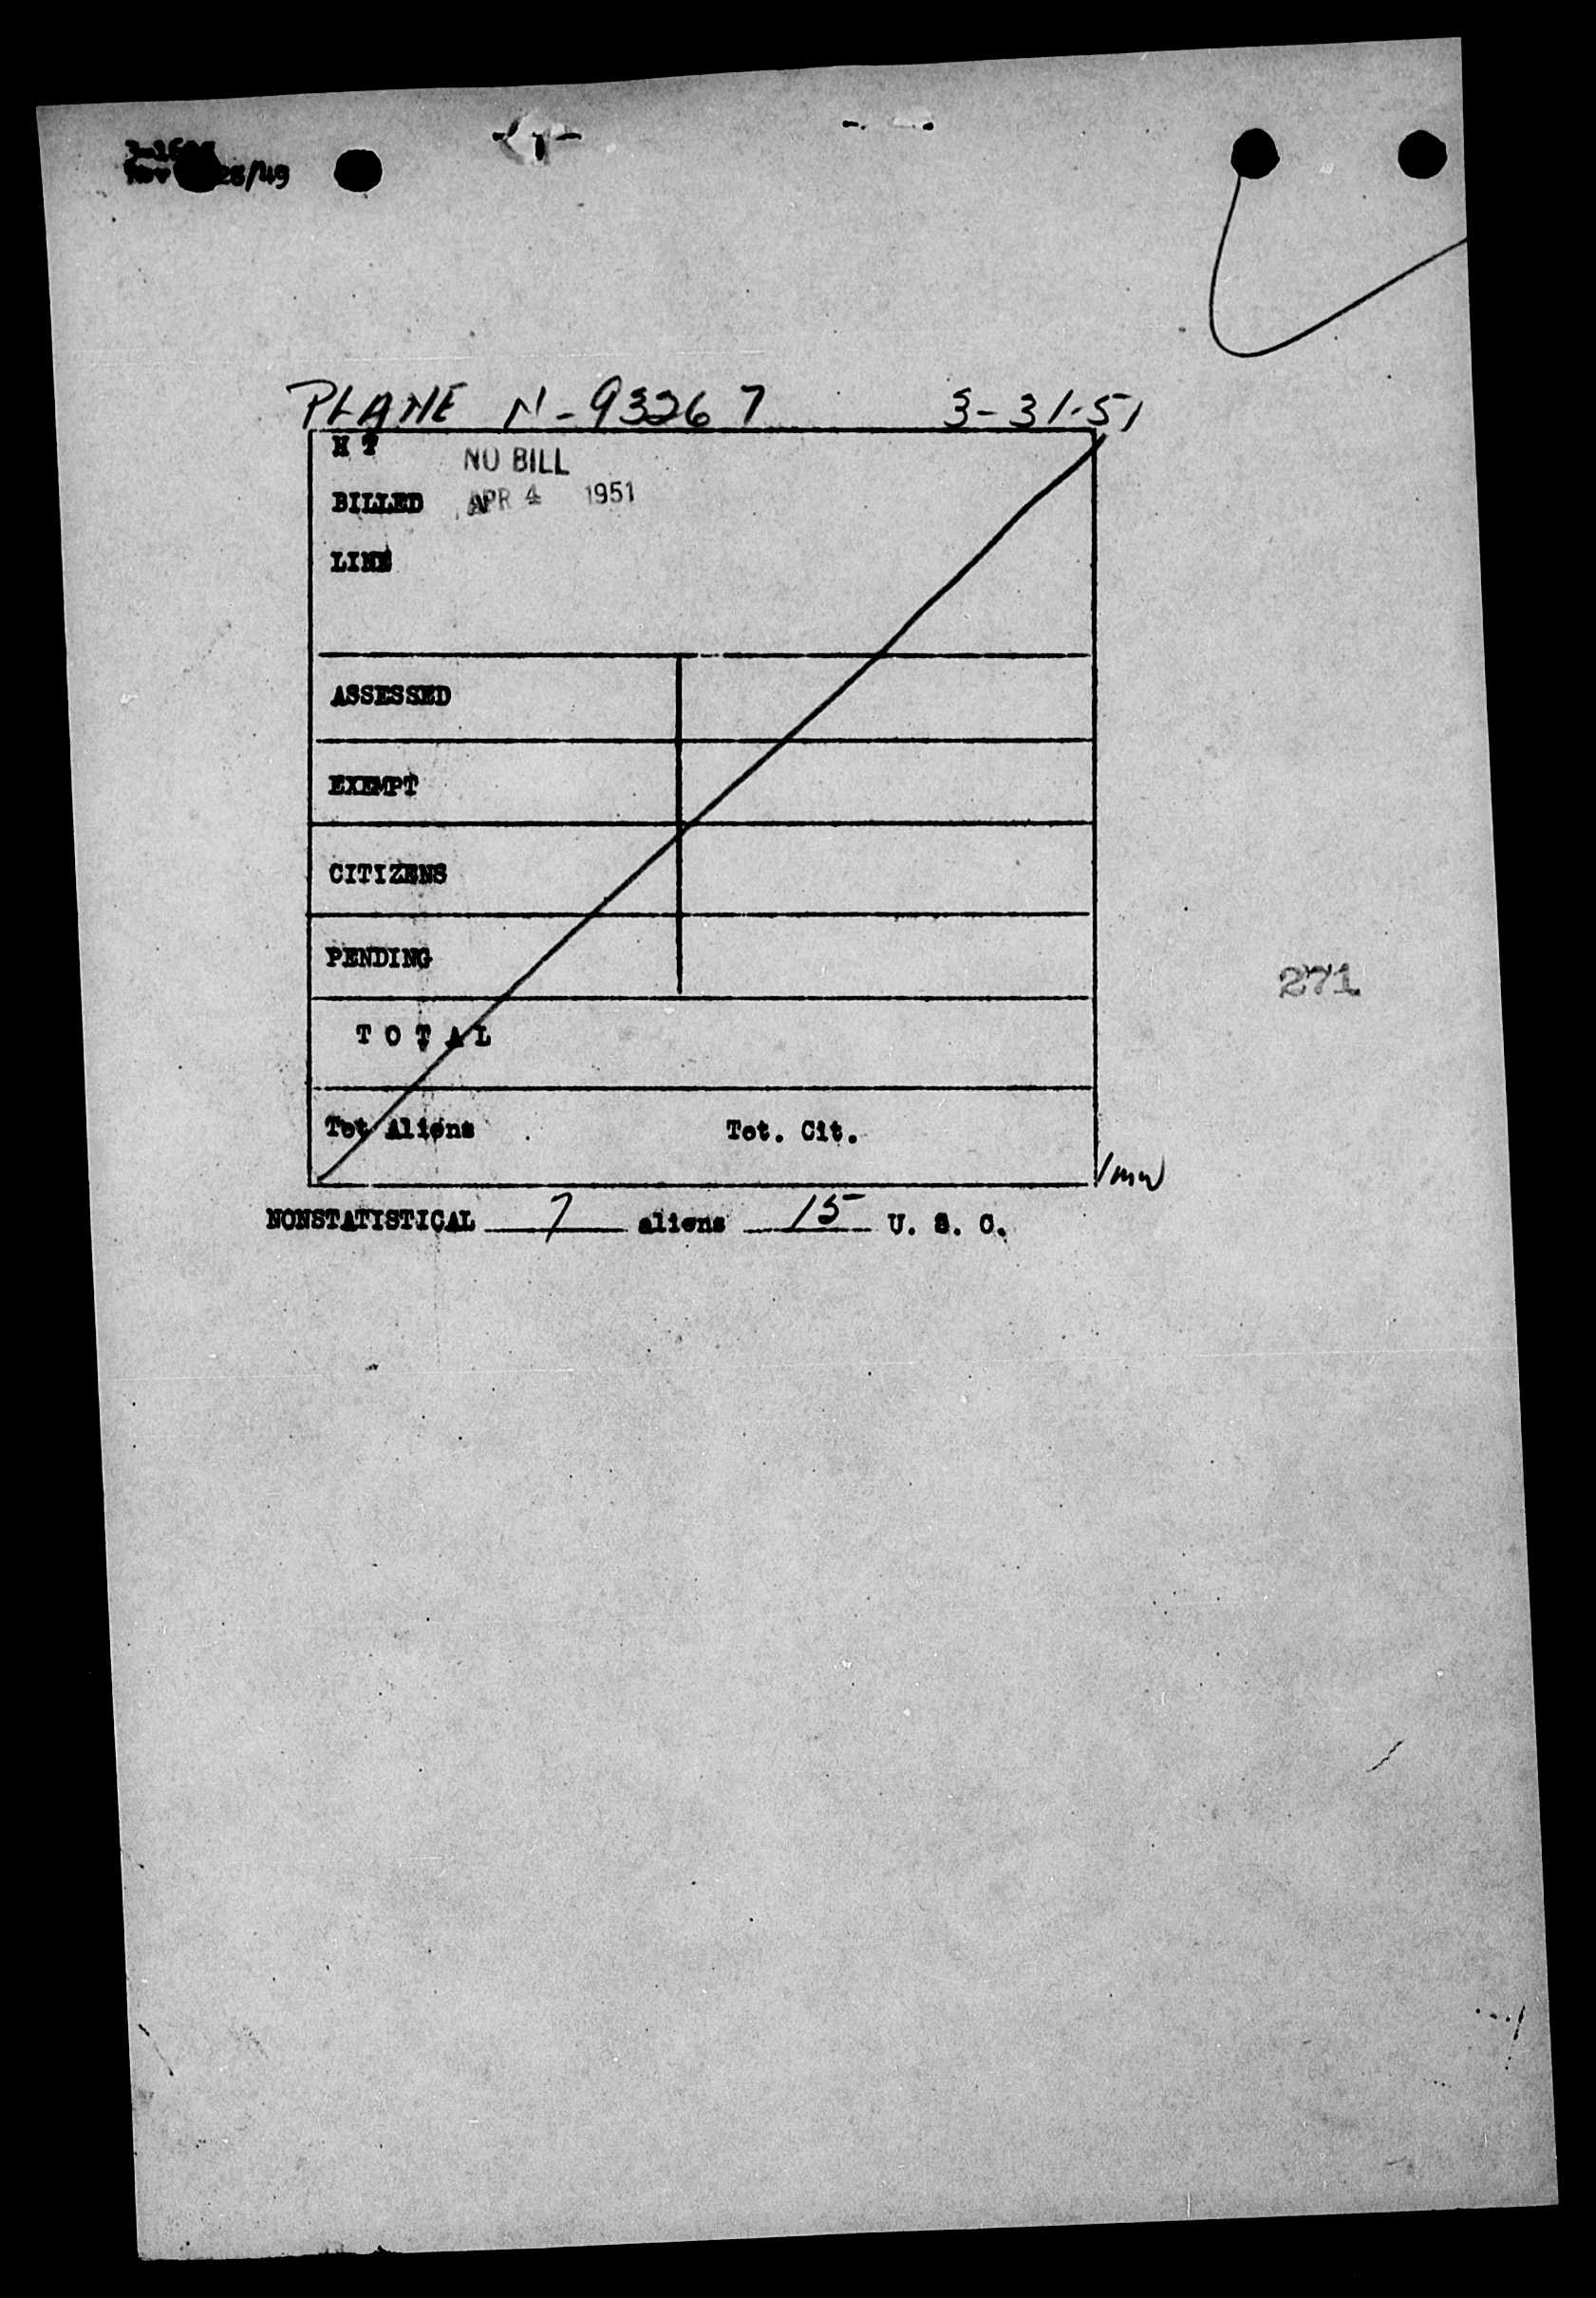 26/49
PLANE N-93267 3-31-51
H T
NO BILL
BILLED APR 4 1951
LINE
ASSESSED
EXEMPT
CITIZENS
PENDING
271
T O T A L
Tot Aliens Tot. Cit.
/mw
NONSTATISTICAL 7 aliens 15 U. S. C.